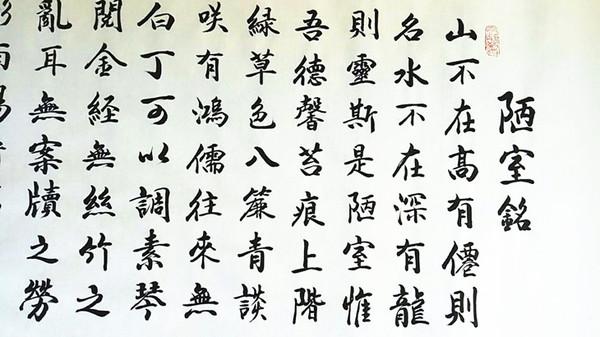 陋室銘
山不在高有僊則
名水不在深有龍
則靈斯是陋室惟
吾德馨苔痕上階
緑草色入簾青談
咲有鴻儒往來無
白丁可以調素琴
閱金経無絲竹之
亂耳無案牘之勞